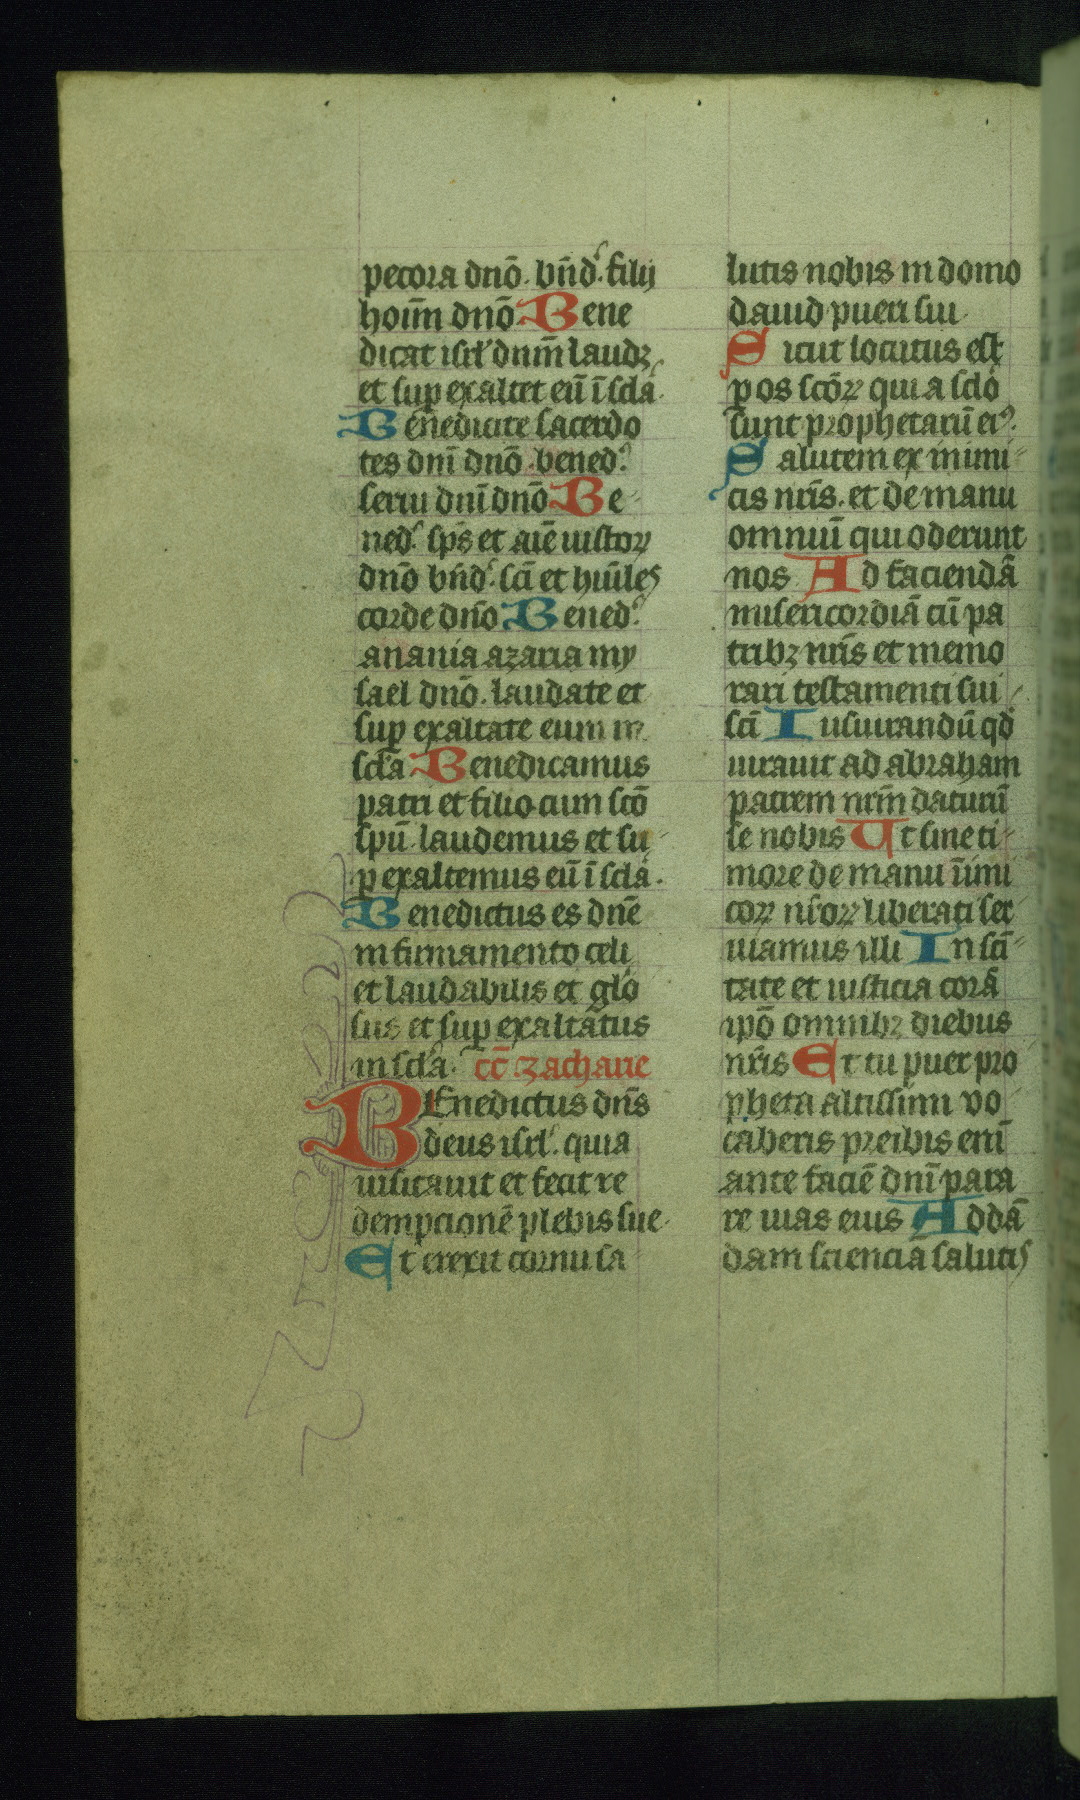 pecora dnō. bn̄d᷒. filij
hoīm dnō Bene
dicat isrl᷒ dnm̄ laudꝫ
et suꝑ exaltet eū ī scl̄a
Benedicite sacerdo
tes dnī dnō. bened᷒
serui dnī dnō Be
ned᷒ sp̄s et aīe iustoꝝ
dnō bn̄d᷒. scī et hūiles
corde dn̄o Bened᷒
anania azaria my
sael dnō. laudate et
suꝑ exaltate eum in
scl̄a Benedicamus
patri et filio cum scō
spū. laudemus et su
ꝑ exaltemus eū ī scl̄a.
Benedictus es dn̄e
in firmamento celi
et laudabilis et glō
sus et suꝑ exaltatus
in scl̄a. cc̄ zacharie
BEnedictus dn̄s
deus isrl᷒. quia
uisitauit et fecit re
dempcionē plebis sue.
Et erexit cornu sa
lutis nobis in domo
dauid pueri sui
Sicut locutus est
ꝑ os scōꝝ qui a scl̄o
sunt prophetarū eiꝰ.
Salutem ex inimi
cis nr̄is. et de manu
omniū qui oderunt
nos Ad faciendā
misericordiā cū pa
tribꝫ nr̄is et memo
rari testamenti sui
scī Iusiurandū qd̄
iurauit ad abraham
patrem nrm̄ daturū
se nobis Ut sine ti
more de manu inīmi
coꝝ nr̄oꝝ liberati ser
uiamus illi In scī
tate et iusticia corā
ip̄o omnibꝫ diebus
nr̄is Et tu puer pro
pheta altissimi vo
caberis preibis enī
ante faciē dnī para
re uias eius Ad dā
dam sciencia salutis